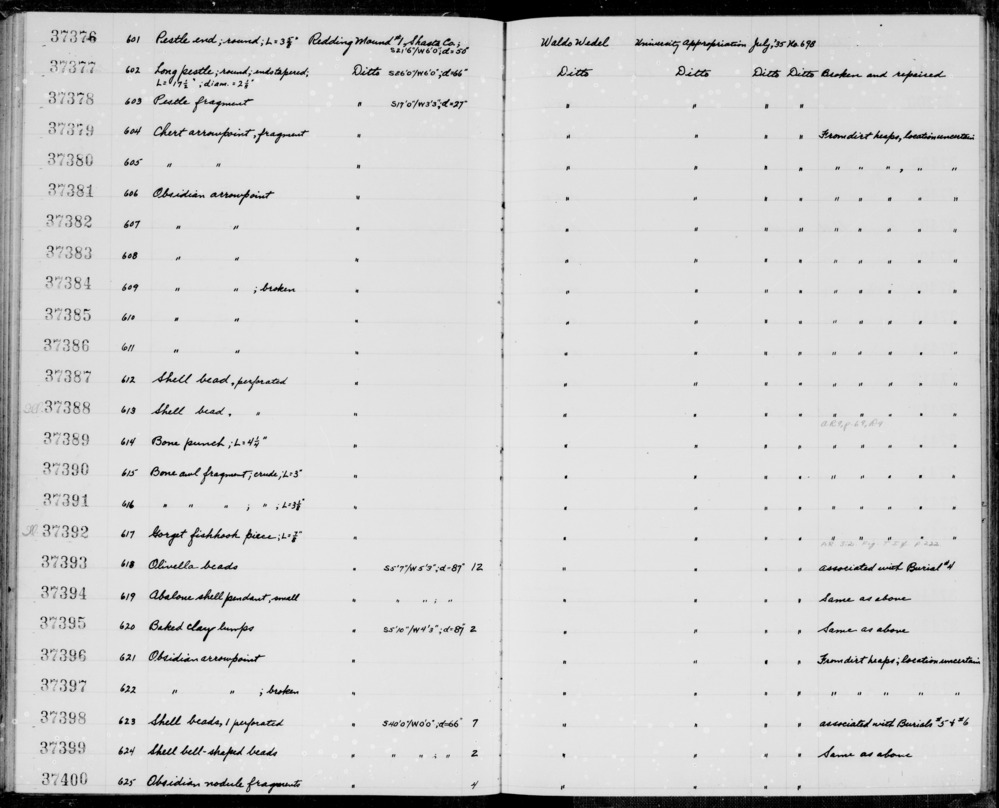 37376 601 Pestle end; round; L=3⅝" Redding Mound #1, Shasta Co.; Waldo Wedel University Appropriation July, '35 No. 698
S21'6"/W6'0"; d=50"
37377 602 Long pestle; round; ends tapered; Ditto S26'0"/W6'0"; d=66" Ditto Ditto Ditto Ditto Broken and repaired
L=17½"; diam.=2½"
37378 603 Pestle fragment " S17'0"/W3'3"; d=27" " " " "
37379 604 Chert arrowpoint, fragment " " " " " From dirt heaps, location uncertain
37380 605 " " " " " " " " " " , " "
37381 606 Obsidian arrowpoint " " " " " " " " " "
37382 607 " " " " " " " " " " " " "
37383 608 " " " " " " " " " " " "
37384 609 " " ; broken " " " " " " " " " "
37385 610 " " " " " " " " " " " "
37386 611 " " " " " " " " " " " "
37387 612 Shell bead, perforated " " " " " " " " " "
37388 613 Shell bead, " " " " " " " " " " "
37389 614 Bone punch; L=4¼" " " " " " " " " " "
37390 615 Bone awl fragment; crude; L=3" " " " " " " " " " "
37391 616 " " " ; " ; L=3⅛" " " " " " " " " " "
37392 617 Gorget fishhook piece; L=⅞" " " " " " " " " " "
37393 618 Olivella beads " S5'7"/W5'3"; d=87" 12 " " " " associated with Burial #4
37394 619 Abalone shell pendant, small " " " ; " " " " " Same as above
37395 620 Baked clay lumps " S5'10"/W4'3"; d=87" 2 " " " " Same as above
37396 621 Obsidian arrowpoint " " " " " From dirt heaps; location uncertain
37397 622 " " ; broken " " " " " " " " " "
37398 623 Shell beads, 1 perforated " S40'0"/W0'0"; d=66" 7 " " " " associated with Burials #5 & #6
37399 624 Shell bell-shaped beads " " " ; " 2 " " " " Same as above
37400 625 Obsidian nodule fragments " 4 " " " "